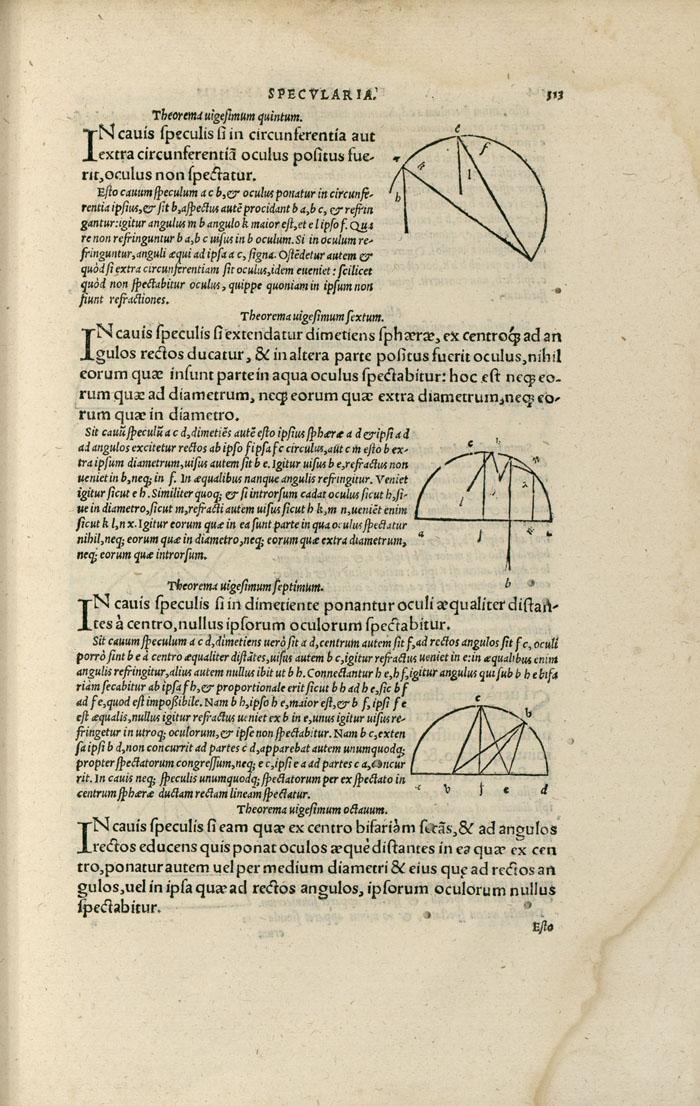 SPECVLARIA. 313
Theorema uigesimum quintum.
IN cauis speculis si in circunferentia aut
extra circunferentiã oculus positus fue-
rit, oculus non spectatur.
Esto cauum speculum a c b, & oculus ponatur in circunfe-
rentia ipsius, & sit b, aspectus autẽ procidant b a, b c, & refrin
gantur: igitur angulus m b angulo k maior est, et e l ipso f. Qua
re non refringuntur b a, b c uisus in b oculum. Si in oculum re-
fringuntur, anguli æqui ad ipsa a c, signa. Ostẽdetur autem &
quòd si extra circunferentiam sit oculus, idem eueniet: scilicet
quòd non spectabitur oculus, quippe quoniam in ipsum non
fiunt refractiones.
e
f
a
k
l
b
Theorema uigesimum sextum.
IN cauis speculis si extendatur dimetiens sphæræ, ex centroq́; ad an
gulos rectos ducatur, & in altera parte positus fuerit oculus, nihil
eorum quæ insunt parte in aqua oculus spectabitur: hoc est neq; eo-
rum quæ ad diametrum, neq; eorum quæ extra diametrum, neq; eo-
rum quæ in diametro.
Sit cauũ speculũ a c d, dimetiẽs autẽ esto ipsius sphæræ a d & ipsi a d
ad angulos excitetur rectos ab ipso f ipsa f c circulus, aut c m esto b ex-
tra ipsum diametrum, uisus autem sit b e. Igitur uisus b e, refractus non
ueniet in b, neq; in f. In æqualibus nanque angulis refringitur. Veniet
igitur sicut e h. Similiter quoq; & si introrsum cadat oculus sicut h, si-
ue in diametro, sicut m, refracti autem uisus sicut h k, m n, ueniẽt enim
sicut k l, n x. Igitur eorum quæ in ea sunt parte in qua oculus spectatur
nihil, neq; eorum quæ in diametro, neq; eorum quæ extra diametrum,
neq; eorum quæ introrsum.
c
l
a
f
b
Theorema uigesimum septimum.
IN cauis speculis si in dimetiente ponantur oculi æqualiter distan-
tes à centro, nullus ipsorum oculorum spectabitur.
Sit cauum speculum a c d, dimetiens uerò sit a d, centrum autem sit f, ad rectos angulos sit f c, oculi
porrò sint b e à centro æqualiter distãtes, uisus autem b c, igitur refractus ueniet in e: in æqualibus enim
angulis refringitur, alius autem nullus ibit ut b h. Connectantur h e, h f, igitur angulus qui sub b h e bifa
riam secabitur ab ipsa f h, & proportionale erit sicut b h ad h e, sic b f
ad f e, quod est impoßibile. Nam b h, ipso h e, maior est, & b f, ipsi f e
est æqualis, nullus igitur refractus ueniet ex b in e, unus igitur uisus re-
fringetur in utroq; oculorum, & ipse non spectabitur. Nam b c, exten
sa ipsi b d, non concurrit ad partes c d, apparebat autem unumquodq;
propter spectatorum congressum, neq; e c, ipsi e a ad partes c a, concur
rit. In cauis neq; speculis unumquodq; spectatorum per ex spectato in
centrum sphæræ ductam rectam lineam spectatur.
c
b
b
f
e
d
Theorema uigesimum octauum.
IN cauis speculis si eam quæ ex centro bifariàm secãs, & ad angulos
rectos educens quis ponat oculos æquè distantes in ea quæ ex cen
tro, ponatur autem uel per medium diametri & eius quę ad rectos an
gulos, uel in ipsa quæ ad rectos angulos, ipsorum oculorum nullus
spectabitur.
Esto